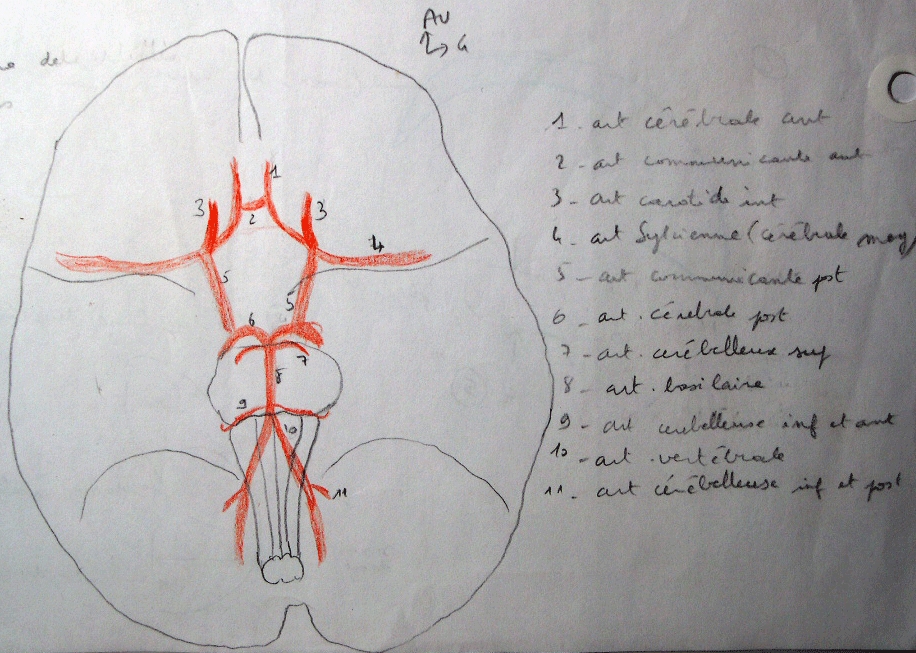 AV
G
dele
3
1
2
3
4
5
5
6
7
8
9
10
11
1 - art cérébrale ant
2 - art communicante ant
3 - art carotide int
4 - art Sylvienne (cérébrale moy
5 - art communicante post
6 - art. cérébrale post
7 - art. cérébelleuse sup
8 - art. basilaire
9 - art cérébelleuse inf et ant
10 - art. vertébrale
11 - art cérébelleuse inf et post